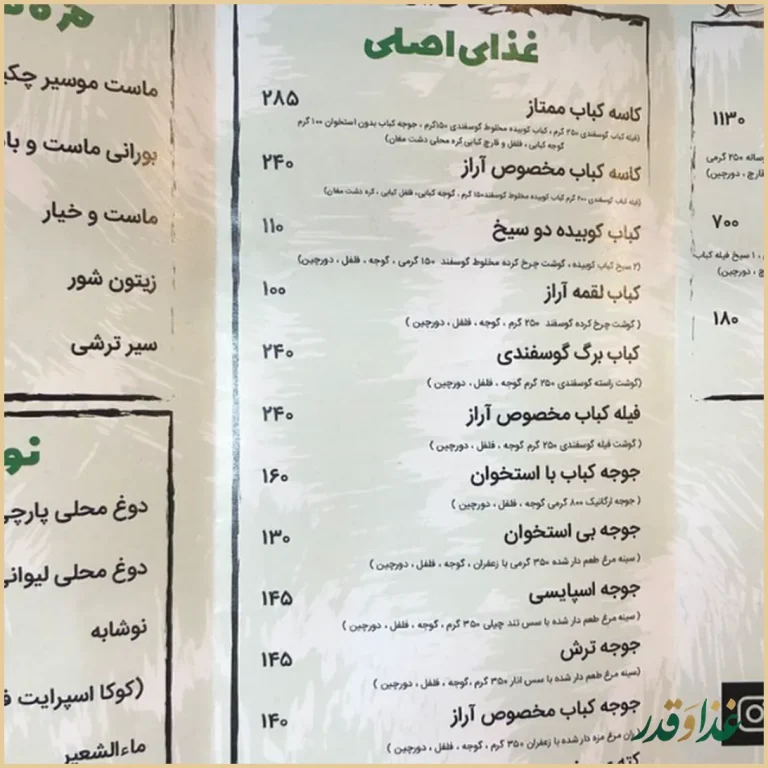 غذای اصلی
کاسه کباب ممتاز ۲۸۵
(فیله کباب گوسفندی ۲۵۰ گرم ، کباب کوبیده مخلوط گوسفندی ۱۵۰گرم ، جوجه کباب بدون استخوان ۱۰۰ گرم
گوجه کبابی ، فلفل و قارچ کبابی کره محلی دشت مغان)
کاسه کباب مخصوص آراز ۲۴۰
(فیله کباب گوسفندی ۲۰۰ گرم کباب کوبیده مخلوط گوسفند۱۵۰ گرم ، گوجه کبابی، فلفل کبابی ، کره دشت مغان)
کباب کوبیده دو سیخ ۱۱۰
(۲ سیخ کباب کوبیده ، گوشت چرخ کرده مخلوط گوسفند ۱۵۰ گرمی ، گوجه ، فلفل ، دورچین)
کباب لقمه آراز ۱۰۰
( گوشت چرخ کرده گوسفند ۲۵۰ گرم ، گوجه ، فلفل ، دورچین )
کباب برگ گوسفندی ۲۴۰
(گوشت راسته گوسفندی ۲۵۰ گرم گوجه ، فلفل ، دورچین )
فیله کباب مخصوص آراز ۲۴۰
( گوشت فیله گوسفندی ۲۵۰ گرم گوجه ، فلفل ، دورچین )
جوجه کباب با استخوان ۱۶۰
( جوجه ارگانیک ۸۰۰ گرمی گوجه ، فلفل ، دورچین )
جوجه بی استخوان ۱۳۰
( سینه مرغ طعم دار شده ۳۵۰ گرمی با زعفران ، گوجه ، فلفل ، دورچین )
جوجه اسپایسی ۱۴۵
( سینه مرغ طعم دار شده با سس تند چیلی ۳۵۰ گرم ، گوجه ، فلفل ، دورچین )
جوجه ترش ۱۴۵
(سینه مرغ طعم دار شده با سس انار ۳۵۰ گرم ،گوجه ، فلفل ، دورچین )
جوجه کباب مخصوص آراز ۱۴۰
مرغ مزه دار شده با زعفران ۳۵۰ گرم ، گوجه ، فلفل ، دورچین )
ماست موسیر
بورانی ماست و
ماست و خیار
زیتون شور
سیر ترشی
دوغ محلی پارچی
دوغ محلی لیوانی
نوشابه
(کوکا اسپرایت
ماءالشعیر
۱۱۳۰
۲۵۰ گرمی
، دورچین)
۷۰۰
، ۱ سیخ فیله کباب
، دورچین)
۱۸۰
غذا و قدر